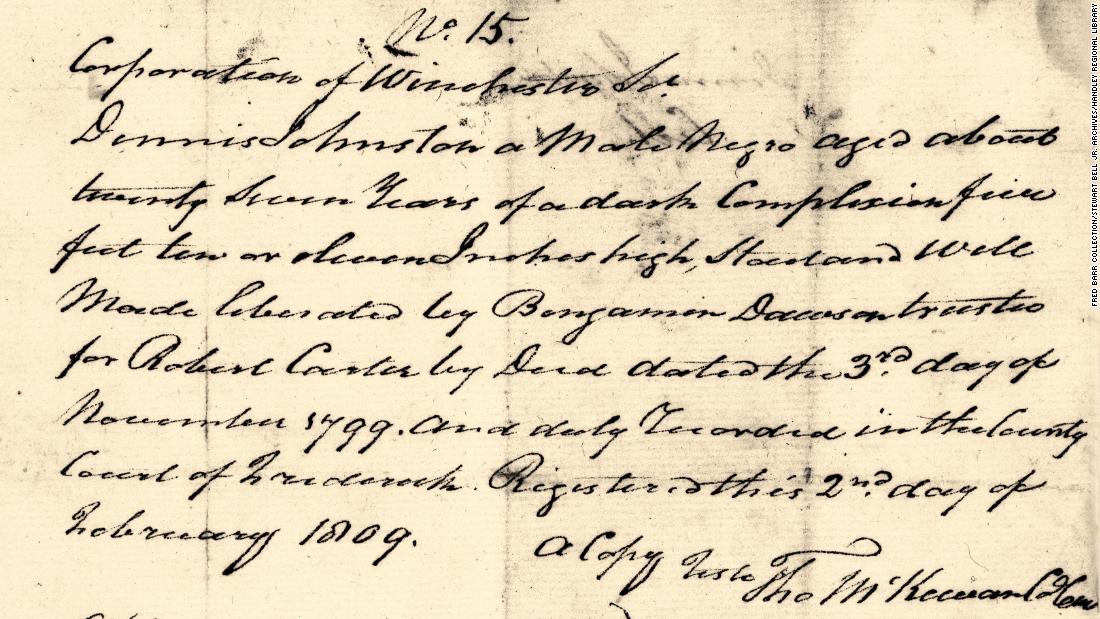 No. 15.
Corporation of Winchester Sc.
Dennis Johnston a Male Negro aged about
twenty Seven Years of a dark Complexion five
feet ten or eleven Inches high, Stout and Well
Made liberated by Bengamon Dawson trustee
for Robert Carter by Deed dated the 3rd day of
November 1799. And duly Recorded in the County
Court of Frederick. Registered this 2nd day of
February 1809.
A Copy Teste Tho McKewan
FRED BARR COLLECTION/STEWART BELL JR. ARCHIVES/HANDLEY REGIONAL LIBRARY